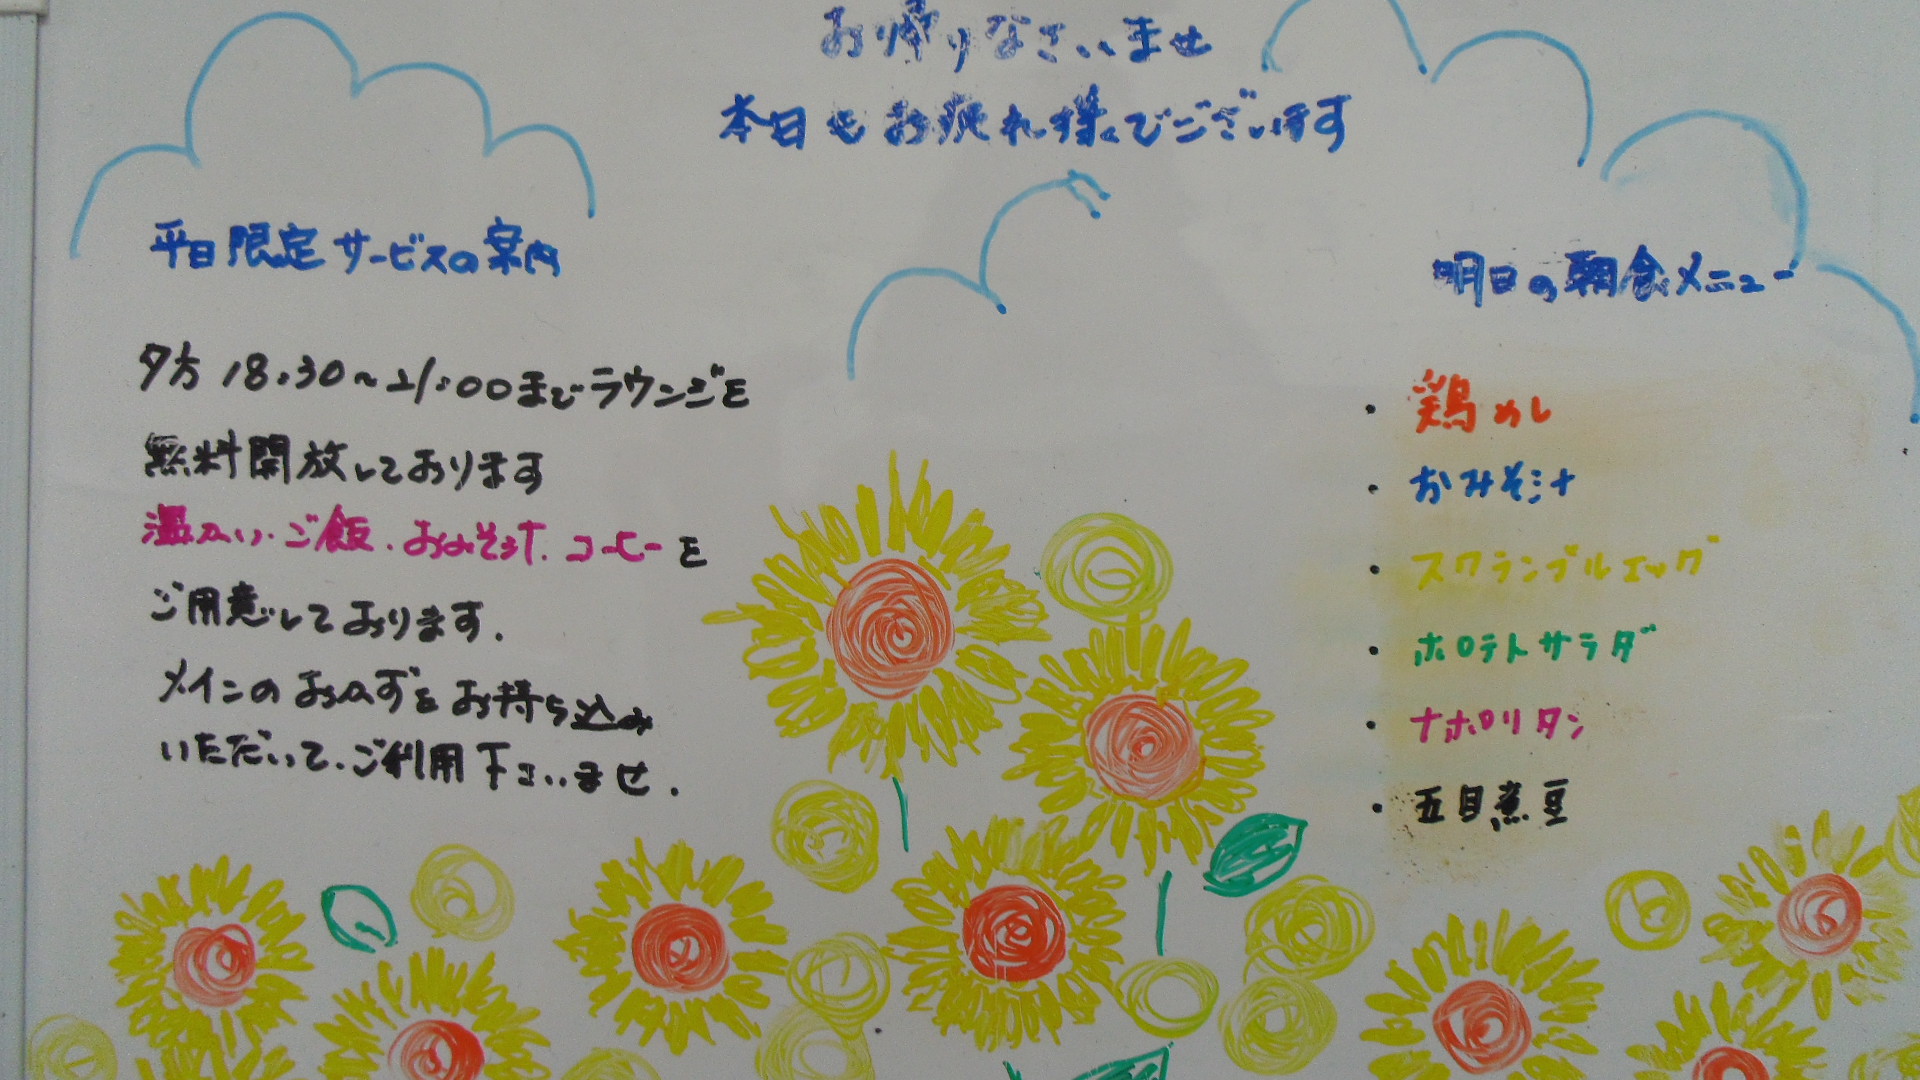 お帰りなさいませ
本日もお疲れ様でございます
平日限定サービスの案内
夕方 18:30~21:00までラウンジを
無料開放しております
温かい・ご飯・おみそ汁・コーヒーを
ご用意しております.
メインのおかずをお持ち込み
いただいて、ご利用下さいませ.
明日の朝食メニュー
・鶏めし
・おみそ汁
・スクランブルエッグ
・ポテトサラダ
・ナポリタン
・五目煮豆